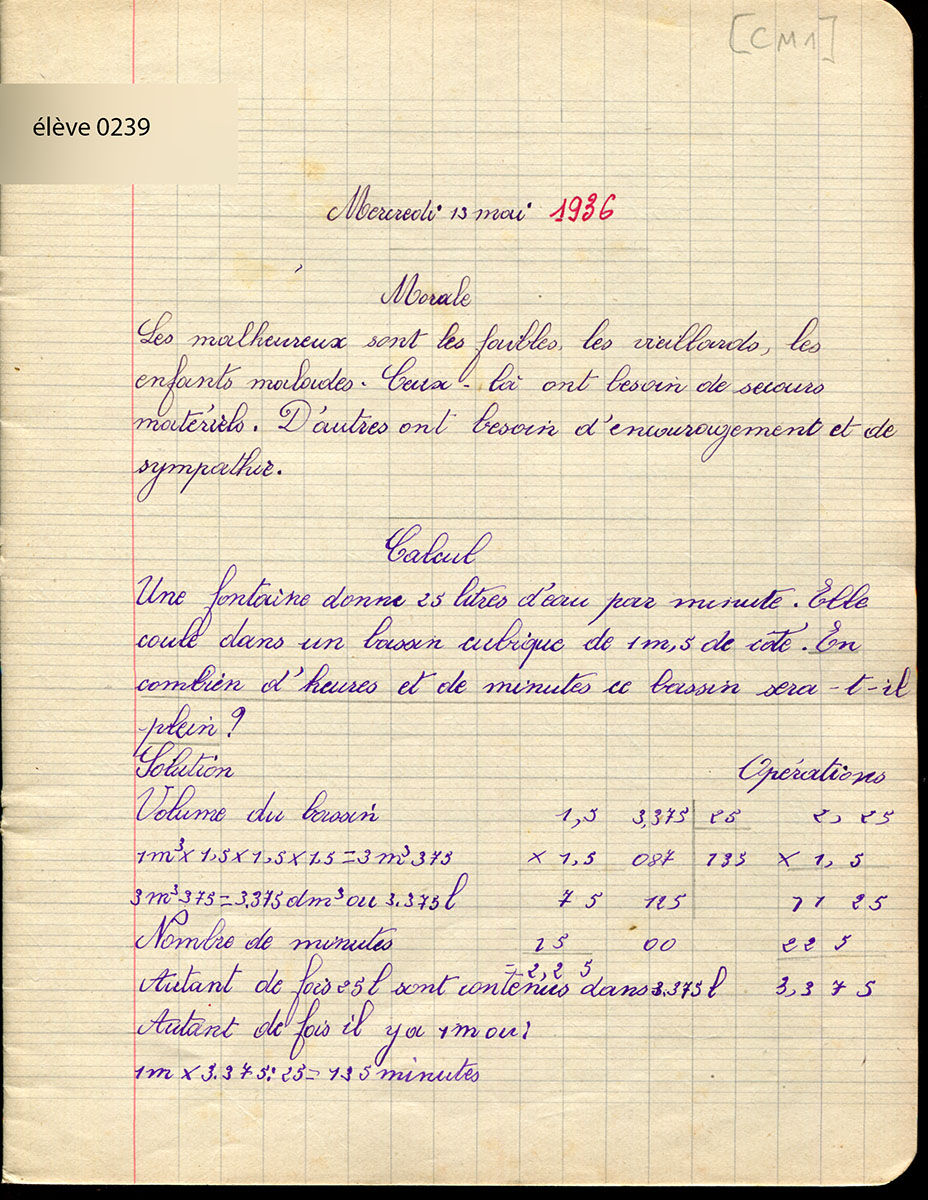 [CM1]
élève 0239
Mercredi 13 mai 1936
Morale
Les malheureux sont les faibles, les vieillards, les
enfants malades. Ceux-là ont besoin de secours
matériels. D'autres ont besoin d'encouragement et de
sympathie.
Calcul
Une fontaine donne 25 litres d'eau par minute. Elle
coule dans un bassin cubique de 1m,5 de côté. En
combien d'heures et de minutes ce bassin sera-t-il
plein?
Solution Opérations
Volume du bassin 1,5 3,375 25 2,25
1m³ x 1,5 x 1,5 x 1.5 = 3m³375 x 1,5 087 135 x 1,5
3m³375 = 3.375dm³ ou 3.375l 75 125 11 25
Nombre de minutes 15 00 22 5
= 2,25
Autant de fois 25l sont contenus dans 3.375l 3,375
Autant de fois il y a 1m ou:
1m x 3.375:25 = 135 minutes